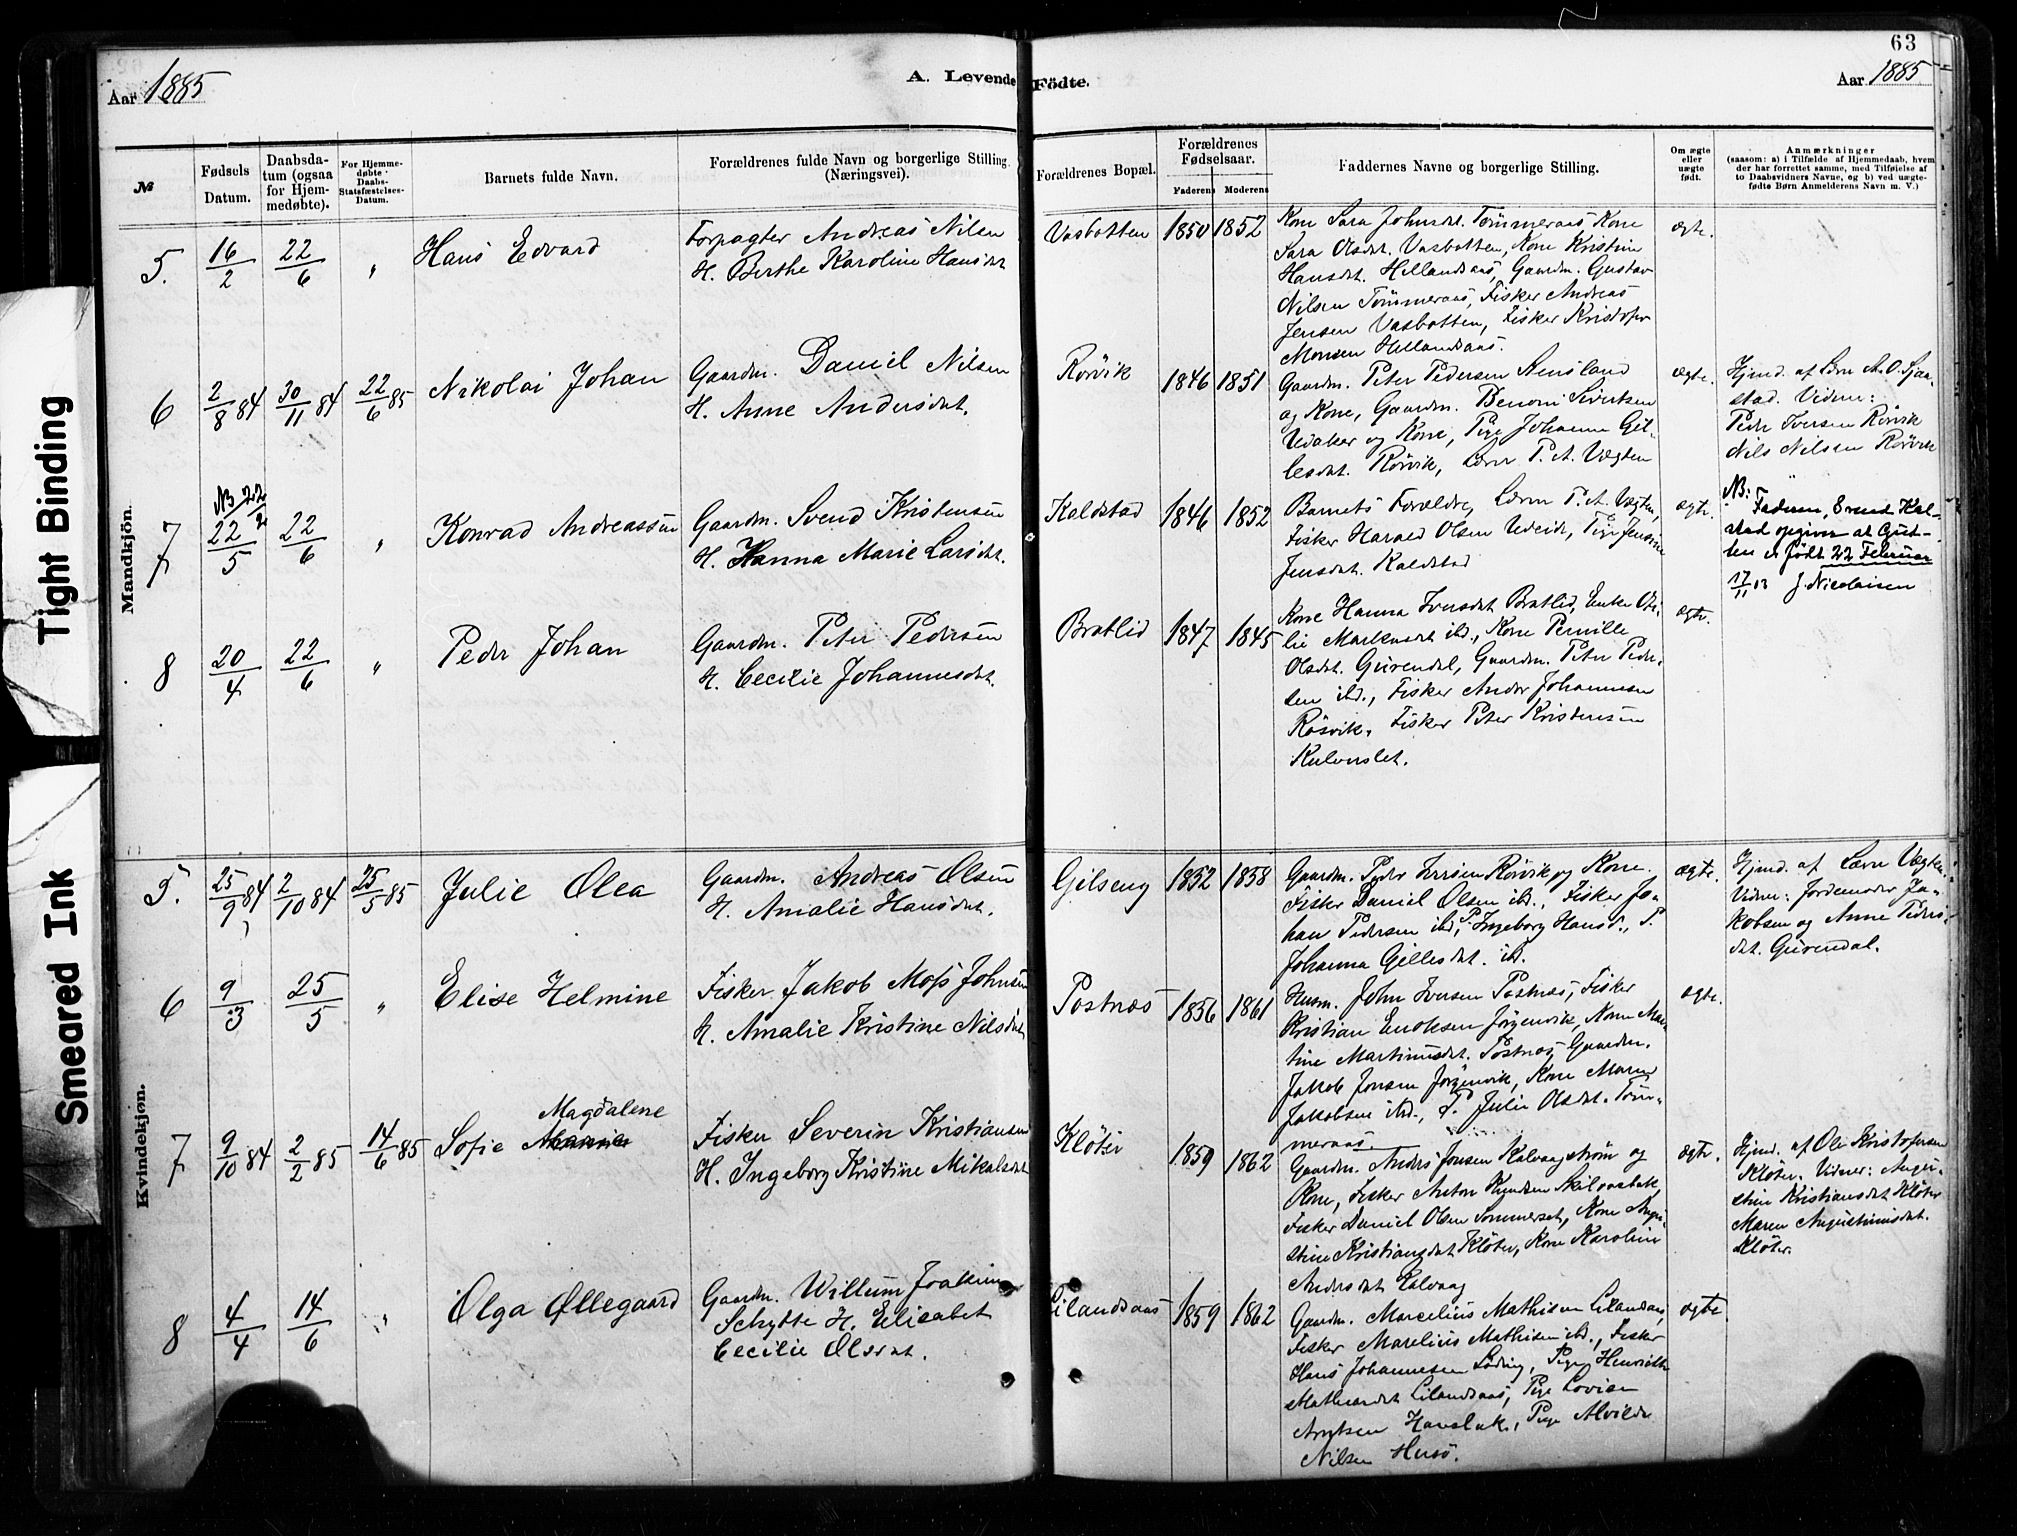 63
Aar 1885
A. Levende Fødte.
Aar 1885
№
Fødsels Datum.
Daabsdatum (ogsaa for Hjemmedøbte).
For Hjemmedøbte Daabs-Statsfæstelses-Datum.
Barnets fulde Navn.
Forældrenes fulde Navn og borgerlige Stilling. (Næringsvei).
Forældrenes Bopæl.
Forældrenes Fødselsaar.
Faderens
Moderens
Faddernes Navne og borgerlige Stilling.
Om ægte eller uægte født.
Anmærkninger
(saasom: a) i Tilfælde af Hjemmedaab, hvem
der har forrettet samme, med Tilføielse af
to Daabsvidners Navne, og b) ved uægte-
fødte Børn Anmelderens Navn m. V.)
Tight Binding
Smeared Ink
Mandkjön.
5. 16/2 22/6 " Hans Edvard
Forpagter Andreas Nilsen
H. Berthe Karoline Hansdat
Vasbotten 1850 1852
Kone Sara Johnsdat. Tømmeraas, Kone
Sara Olsdat. Vasbotten, Kone Kristine
Hansdat. Hillandsaas, Gaardm. Gustav
Nilsen Tømmeraas, Fisker Andreas
Jensen Vasbotten, Fisker Kristofer
Monsen Hellandsaas.
ægte.
6 2/8 84 30/11 84 22/6 85 Nikolai Johan
Gaardm. Daniel Nilsen
H. Anne Andersdat.
Rørvik 1846 1851
Gaardm. Peter Pedersen Stensland
og Kone, Gaardm. Benoni Sivertsen
og Kone, Pige Johanna Gil-
lesdat. Rørvik, Lærer P. A. Vægten
ægte.
Hjmd. af Lærer A. O.
stad. Vidner:
Peder Iversen Rørvik
Nils Nilsen Rørvik
7 NB 22/2 22/5 22/6 " Konrad Andreassen
Gaardm. Svend Kristensen
H. Hanna Marie Larsdat.
Kaldstad 1846 1852
Barnets Forældre, Lærer P. A. Vægten,
Fisker Harald Olsen Udeide, Pige Jensine
Jensdat. Kaldstad
ægte.
NB:
Faderen, Svend Kal-
stad opgiver at Gut-
ten er født 22 Februar
17/11 13 J. Nicolaisen
8 20/4 22/6 " Peder Johan
Gaardm. Peter Pedersen
H. Cecilie Johannesdat.
Bratlid 1847 1845
Kone Hanna Iversdat Bratlid, Enke Ot-
lie Markusdat ibd., Kone Pernille
Olsdat. Gurendal, Gaardm. Peter Peder-
sen ibd., Fisker Ander Johannesen
Røsvik, Fisker Peter Kristensen
ægte.
Kvindekjön.
5. 25/9 84 2/10 84 25/5 85 Julie Olea
Gaardm. Andreas Olsen
H. Amalie Hansdat.
Gilseng 1852 1858
Gaardm. Peder Iversen Rørvik og Kone.
Fisker Daniel Olsen ibd., Fisker Jo-
han Pedersen ibd., P. Ingeborg Hansd., P.
Johanna Gillesdat. ibd.
ægte.
Hjmd. af Lærer Vægten.
Vidner: Jordemoder Ja-
kobsen og Anne Peders-
dat. Gurendal.
6 9/3 25/5 " Elise Helmine
Fisker Jakob Moss Johnsen
H. Amalie Kristine Nilsdat
Postnæs 1856 1861
Husm. John Iversen Postnæs, Fisker
Kristian Enoksen Jørgenvik, Kone Mar-
tine Martinusdat. Postnæs, Gaardm.
Jakob Jensen Jørgenvik, Kone Maren
Jakobsen ibd., P. Julie Olsdat. Tøm-
meraas.
ægte.
7 9/10 84 2/2 85 14/6 85 Sofie Magdalene
Fisker Severin Kristiansen
H. Ingeborg Kristine Mikalsdat
Kløter 1859 1862
Gaardm. Anders Jensen Kalvaagstrøm og
Kone, Fisker Anton Knudsen Skilvasbak,
Fisker Daniel Olsen Sommerset, Kone Augu-
stine Kristiansdat Kløter, Kone Karoline
Andersdat Kalvaag
ægte.
Hjmd. af Ole Kristofersen
Kløter. Vidner: Augu-
stine Kristiansdat Kløter
Maren Augustinusdat.
Kløter.
8 4/4 14/6 " Olga Øllegaard
Gaardm. Willum Joakim
Schytte H. Elisabet
Cecilie Olsdat.
Lilandsaas 1859 1862
Gaardm. Marcelius Mathisen Lilandsaas,
Fisker Marelius Mathisen ibd., Fisker
Hans Johannesen Løding, Pige Henrikke
Mathiasdat Lilandsaas, Pige Lovise
Arntsen Havsbak, Pige Alvilde
Nilsen Husø.
ægte